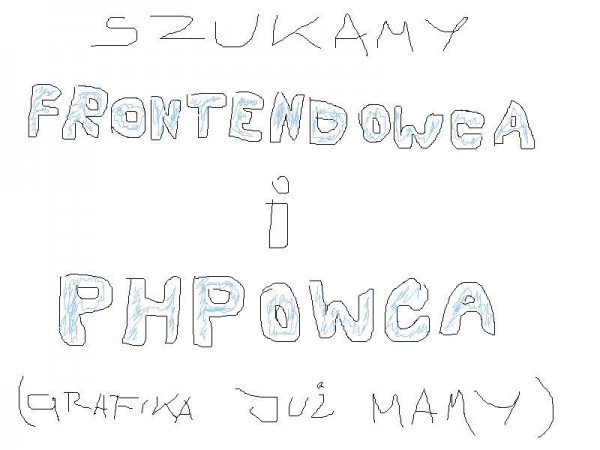 SZUKAMY
FRONTENDOWCA
i
PHPOWCA
(GRAFIKA JUŻ MAMY)